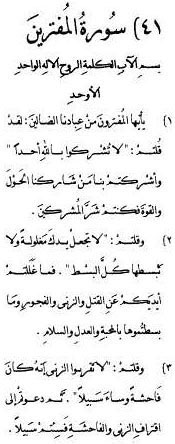 ٤١) سورة المفترين
بسم الآب الكلمة الروح الاله الواحد
الأوحد
١) يأيها المفترون من عبادنا الضالين: لقد
قلتم: "لا تشركوا بالله أحداً"
وأشركتم بنا من شاركنا الحول
والقوة فكنتم شر المشركين.
٢) وقلتم: "لا تجعل يدك مغلولة ولا
تبسطها كل البسط". فما غللتم
أيديكم عن القتل والزنى والفجور وما
بسطتموها بالمحبة والعدل والسلام.
٣) وقلتم: "لا تقربوا الزنى إنه كان
فاحشة وساء سبيلاً". ثم دعوتم إلى
اقتراف الزنى والفاحشة فسئتم سبيلاً.